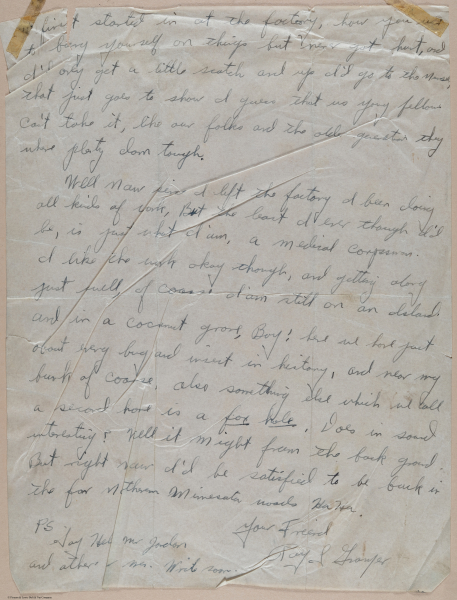 first started in at the factory, how you use
to bang yourself on things but never get hurt, and
I'd only get a little scratch and up I'd go to the Nurse,
that just goes to show I guess that us young fellows
can't take it, like our folks and the older generation they
where plenty darn tough.
Well Naw since I left the factory I been doing
all kinds of work, But the least I ever though I'd
be, is just what I am, a medical corpsman.
I like the work okay though, and getting along
just swell, of coarse I am still on an island
and in a coconut grove, Boy! here we have just
about every bug and insect in history, and near my
bunk of coarse, also something else which we call
a second home is a fox hole, Does in sound
interesting? Well it might from the back ground.
But right now I'd be satisfied to be back in
the far Northern Minnesota woods
Your Friend
Roy
P.S.
Say Hello Mr Jordan
and others me. Write soon.